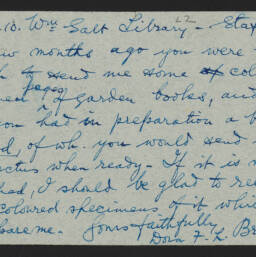 Wm Salt Library - Staf
22
few months ago you were
to send me some of col
pages
of Garden books, and
you had in preparation a b
d, of wh. you would send
ectus when ready - If it is
shed, I should be glad to re
coloured specimens of it whi
spare me. Yours faithfully
Dora F. L. Br